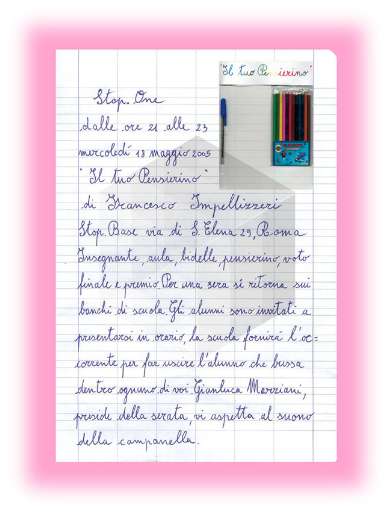 "Il tuo Pensierino"
Stop. One
dalle ore 21 alle 23
mercoledì 18 maggio 2005
"Il tuo Pensierino"
di Francesco Impellizzeri
Stop. Base via di S. Elena 29, Roma
Insegnante, aula, bidelle, pensierino, voto
finale e premio. Per una sera si ritorna sui
banchi di scuola. Gli alunni sono invitati a
presentarsi in orario, la scuola fornirà l'oc=
corrente per far uscire l'alunno che bussa
dentro ognuno di voi. Gianluca Marziani,
preside della serata, vi aspetta al suono
della campanella.